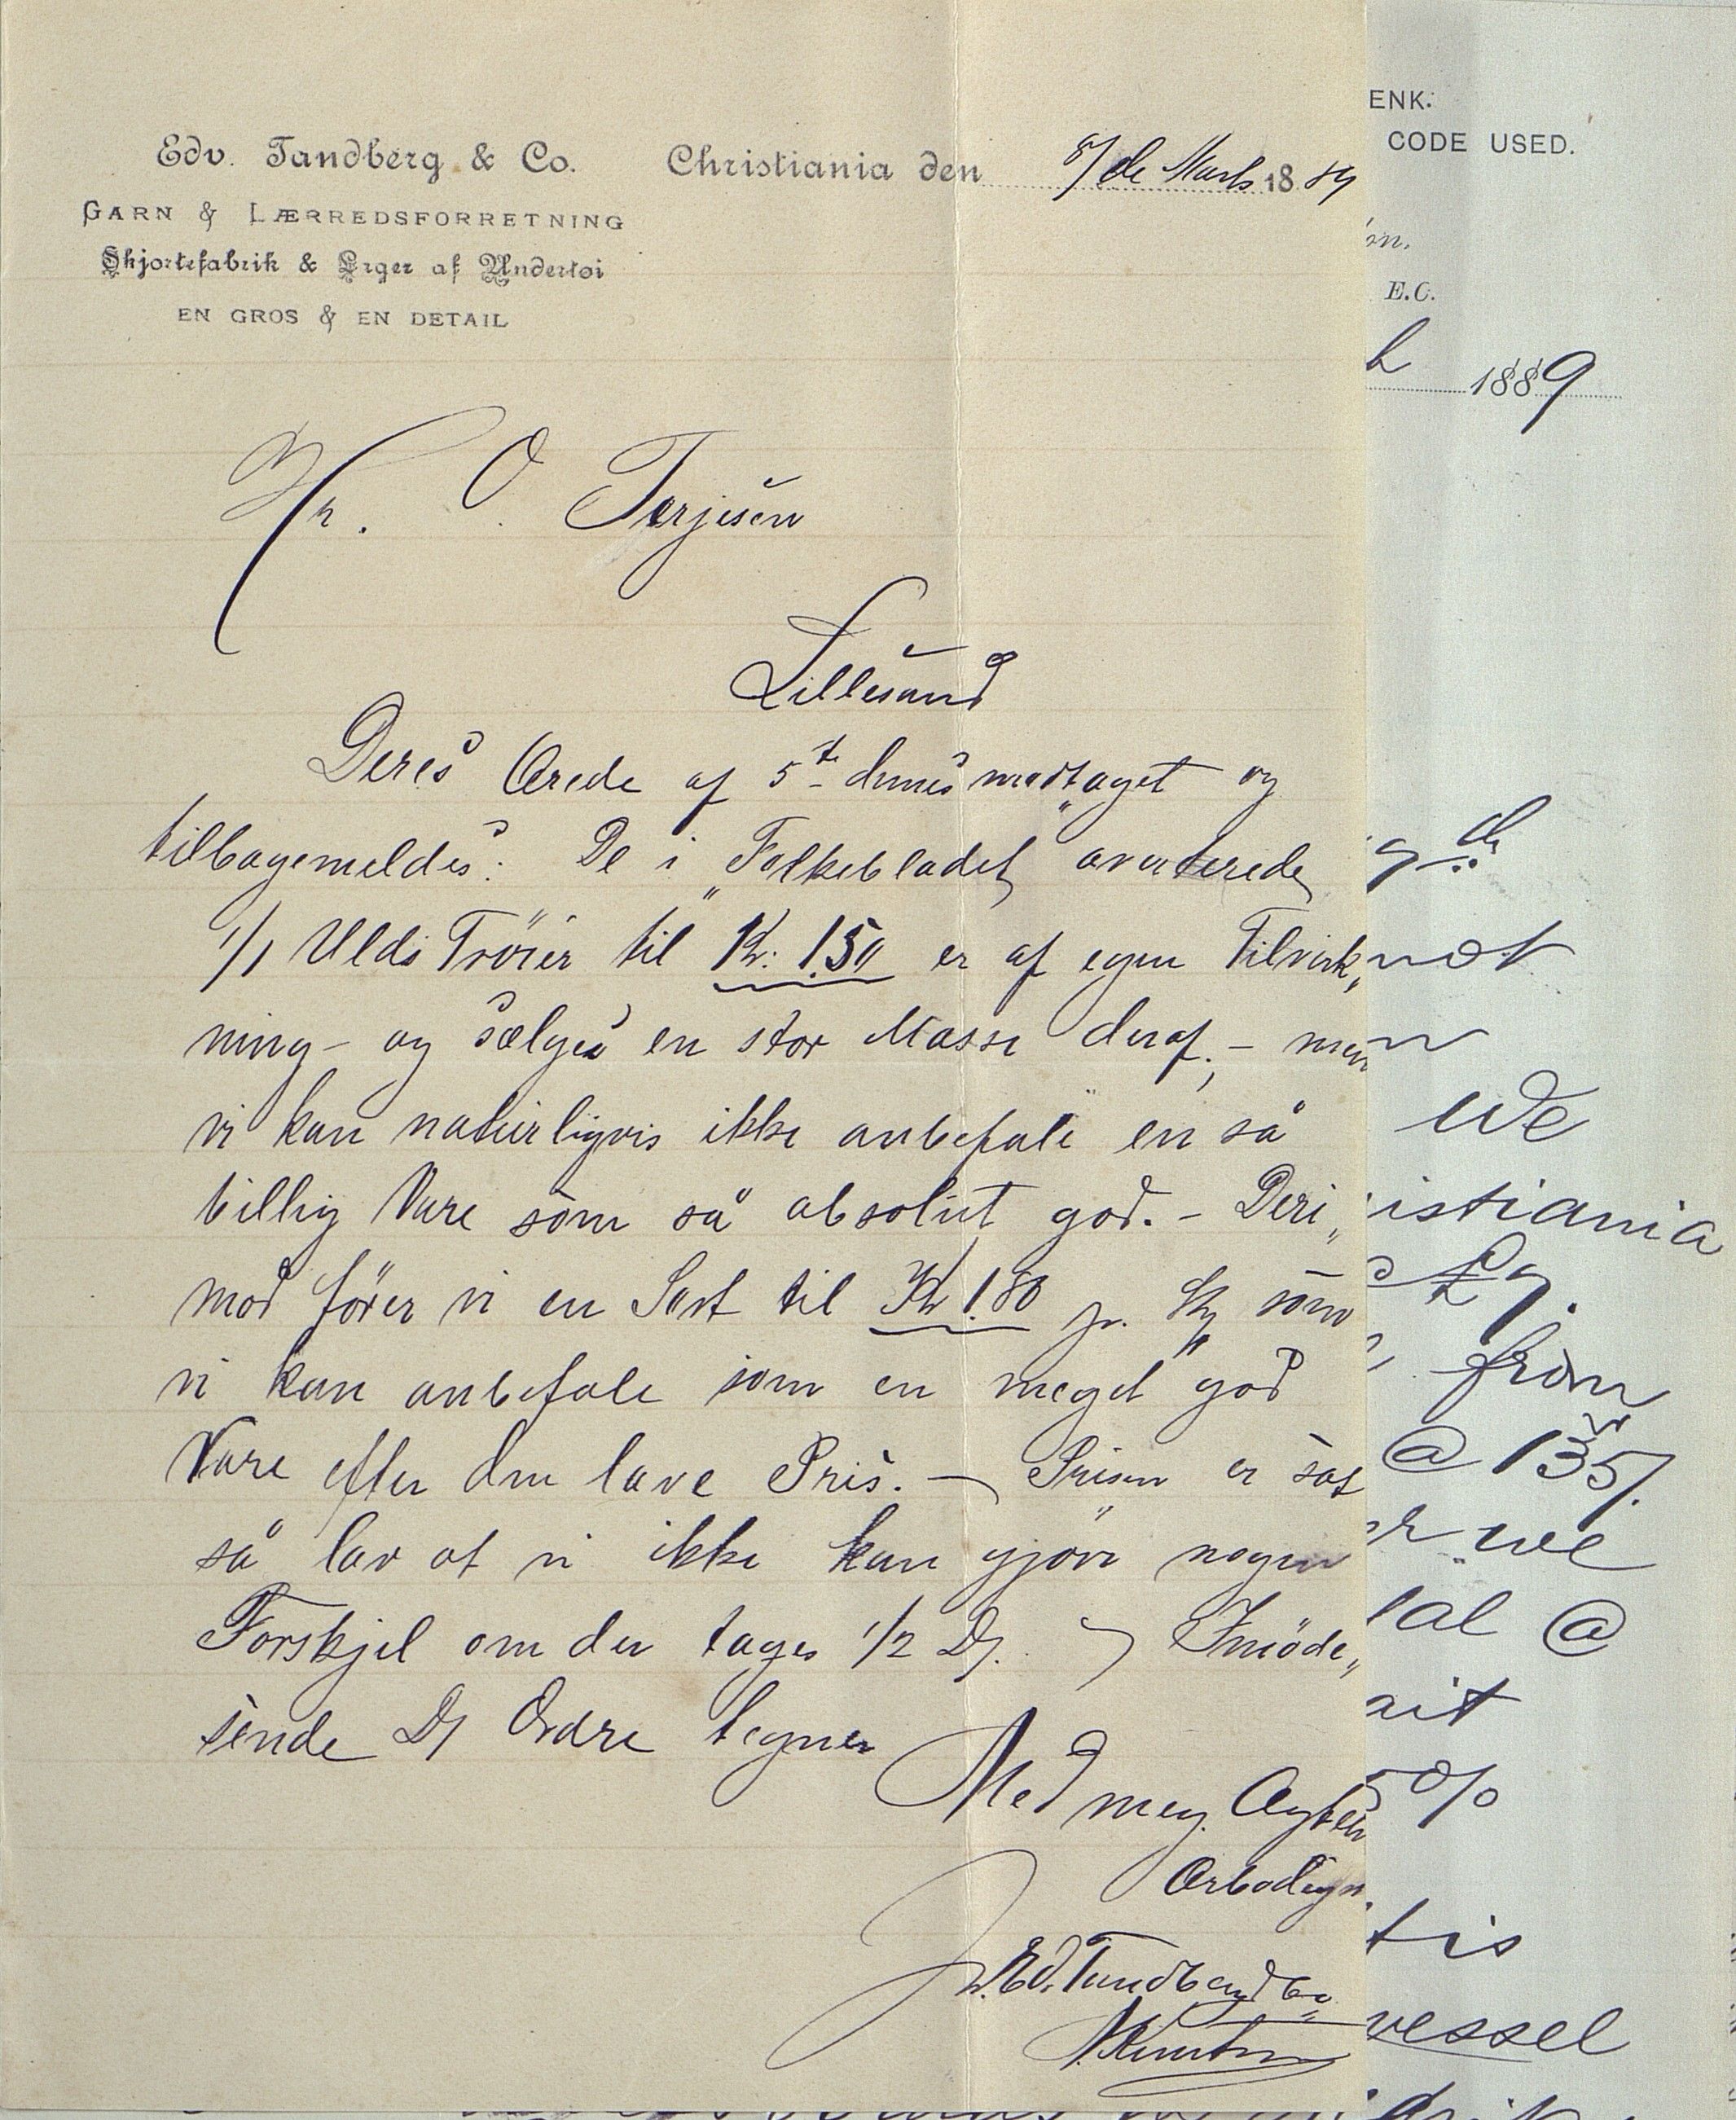 Edv. Tandberg & Co.
GARN & LÆRREDSFORRETNING
Skjortefabrik & Lager af Undertøi
EN GROS & EN DETAIL
Christiania den 8/de Marts 1889
Hr. O Terjesen
Lillesand
Deres Ærede af 5te dennes modtaget og
tilbagemeldes: De i „Folkebladet“ averterede
1/1 Ulds Trøier til Kr: 1.50 er af egen Tilvirk„
ning – og sælges en stor Masse deraf; – men
vi kan naturligvis ikke anbefale en så
billig Vare som så absolut god. – Deri„
mod fører vi en Sort til Kr 1.80 pr. Stk som
vi kan anbefale som en meget god
Vare efter den lave Pris. – Prisen er sat
så lav at vi ikke kan gjøre nogen
Forskjel om der tages 1/2 Dz. – Imøde„
sende D/ Ordre tegner
Med meg. Agtelse
Ærbødigst
Edv. Tandberg & Co
ENK.
CODE USED.
on.
E.C.
h 1889
9th
not
n
We
istiania
Ey.
from
@ 135/
or we
tal @
ait
5%
tis
vessel